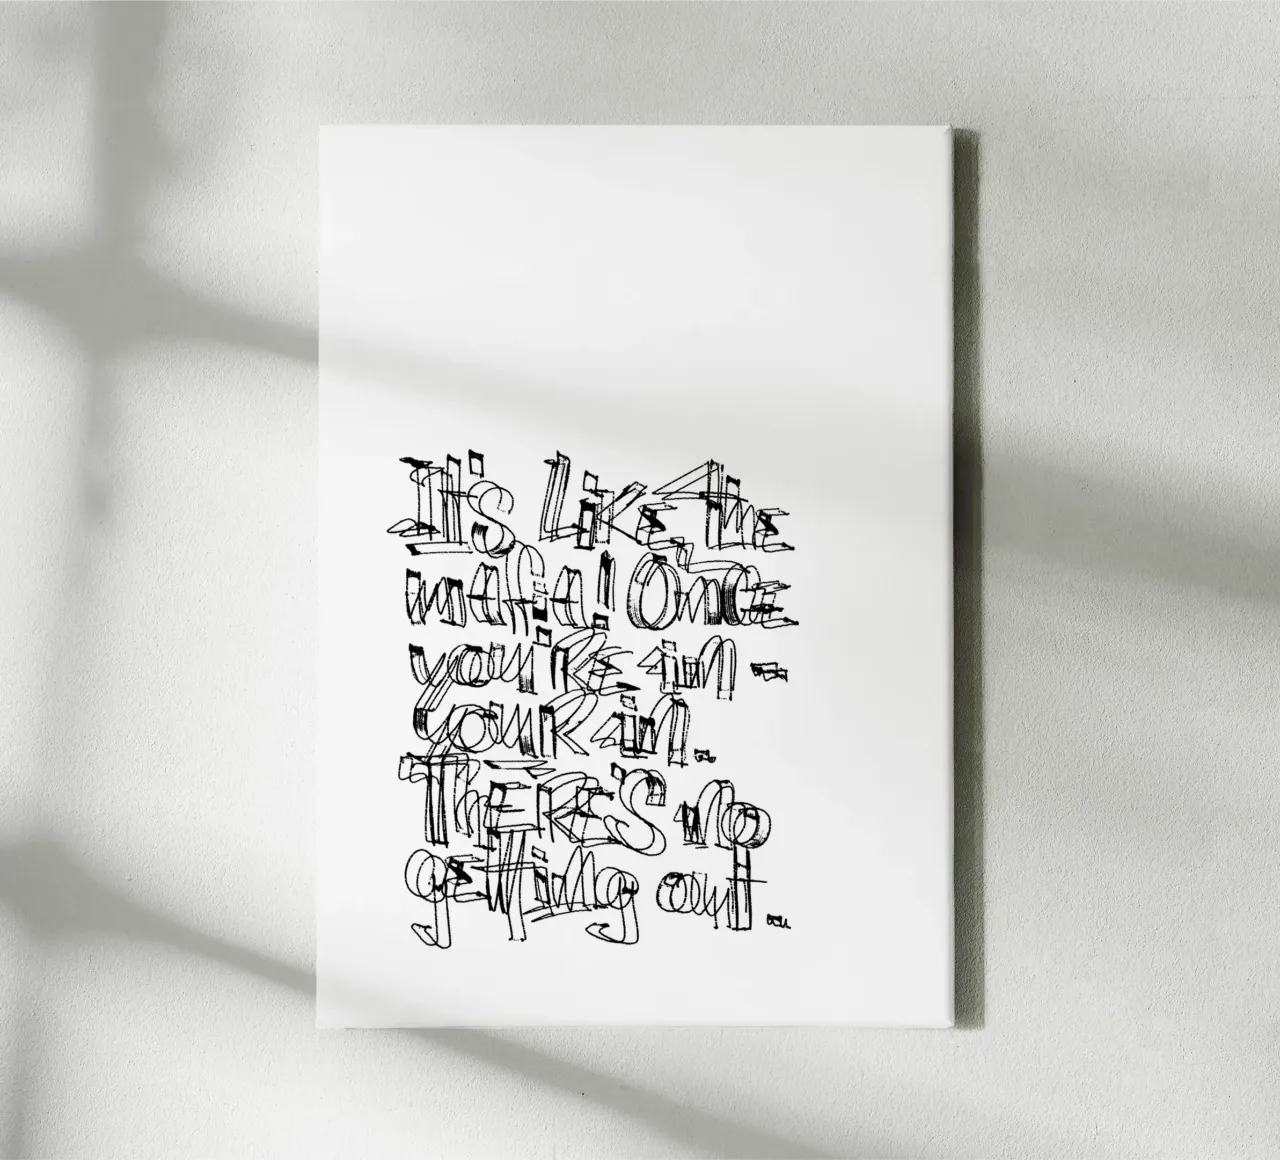 It's like the
mafia! Once
you're in -
your in.
There's no
getting out.